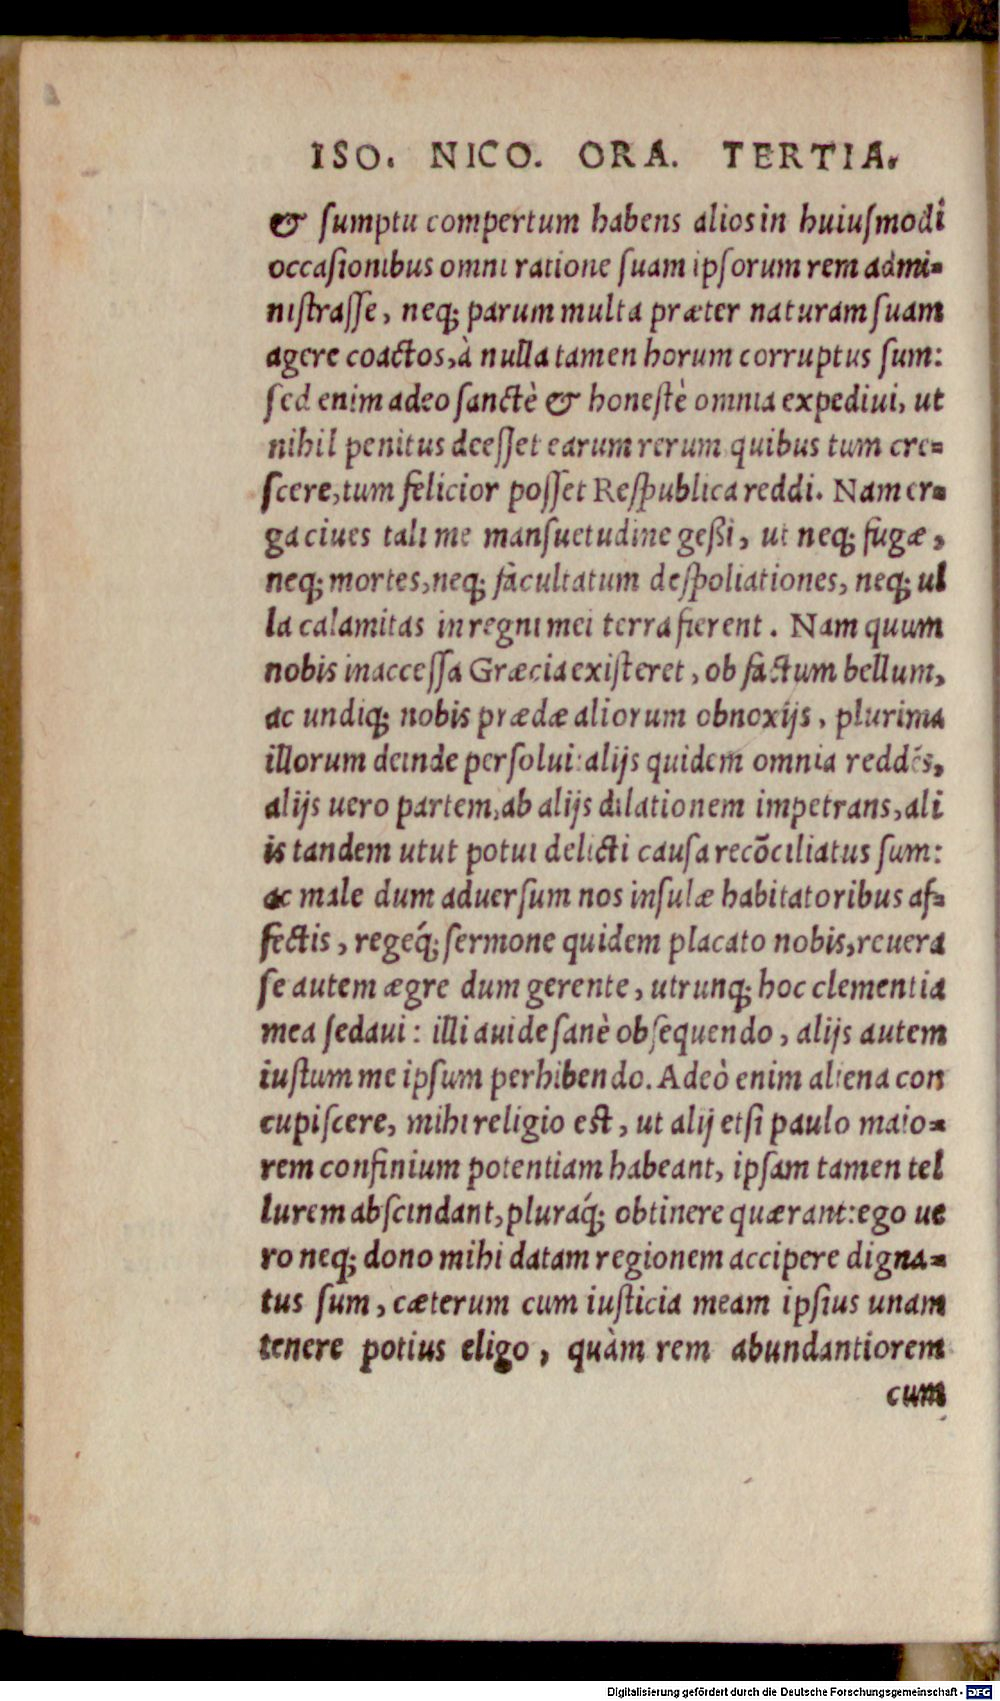 ISO. NICO. ORA. TERTIA.
& ſumptu compertum habens alios in huiuſmodi
occaſionibus omni ratione ſuam ipſorum rem admi-
niſtraſſe, neq; parum multa præter naturam ſuam
agere coactos, à nulla tamen horum corruptus ſum:
ſed enim adeo ſanctè & honeſtè omnia expediui, ut
nihil penitus deeſſet earum rerum quibus tum cre-
ſcere, tum felicior poſſet Reſpublica reddi. Nam er-
ga ciues tali me manſuetudine geßi, ut neq; fugæ,
neq; mortes, neq; facultatum deſpoliationes, neq; ul
la calamitas in regni mei terra fierent. Nam quum
nobis inacceſſa Græcia exiſteret, ob factum bellum,
ac undiq; nobis prædæ aliorum obnoxijs, plurima
illorum deinde perſolui: alijs quidem omnia reddẽs,
alijs uero partem, ab alijs dilationem impetrans, ali
is tandem utut potui delicti cauſa recõciliatus ſum:
ac male dum aduerſum nos inſulæ habitatoribus af-
fectis, regeq́; ſermone quidem placato nobis, reuera
ſe autem ægre dum gerente, utrunq; hoc clementia
mea ſedaui: illi auide ſanè obſequendo, alijs autem
iuſtum me ipſum perhibendo. Adeò enim aliena con
cupiſcere, mihi religio eſt, ut alij etſi paulo maio-
rem confinium potentiam habeant, ipſam tamen tel
lurem abſcindant, pluraq́; obtinere quærant: ego ue
ro neq; dono mihi datam regionem accipere digna-
tus ſum, cæterum cum iuſticia meam ipſius unam
tenere potius eligo, quàm rem abundantiorem
cum
Digitalisierung gefördert durch die Deutsche Forschungsgemeinschaft - DFG